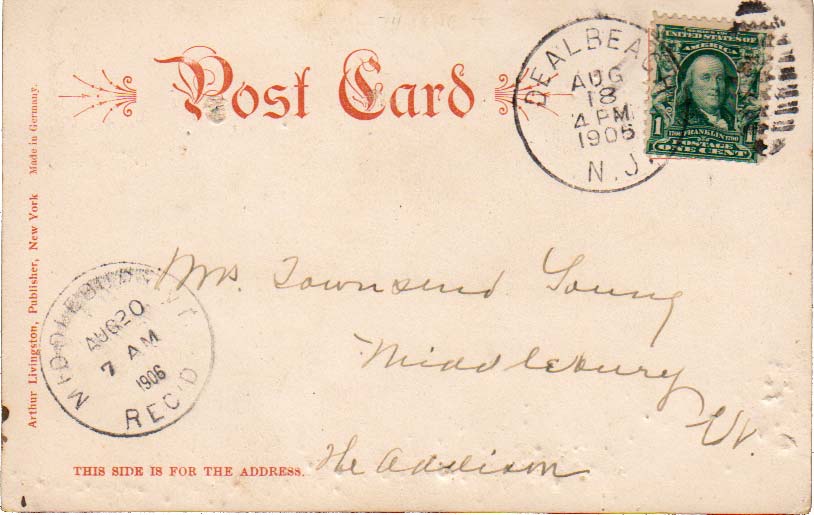 Post Card
DEALBEACH
AUG
18
4 PM
1906
N.J.
SERIES 1902
UNITED STATES OF
AMERICA
1706 FRANKLIN 1790
1
POSTAGE
ONE CENT
Made in Germany.
Arthur Livingston, Publisher, New York
MIDDLEBURY VT
AUG 20
7 AM
1906
REC'D
Mrs. Townsend Young
Middlebury
Vt.
The Addison
THIS SIDE IS FOR THE ADDRESS.